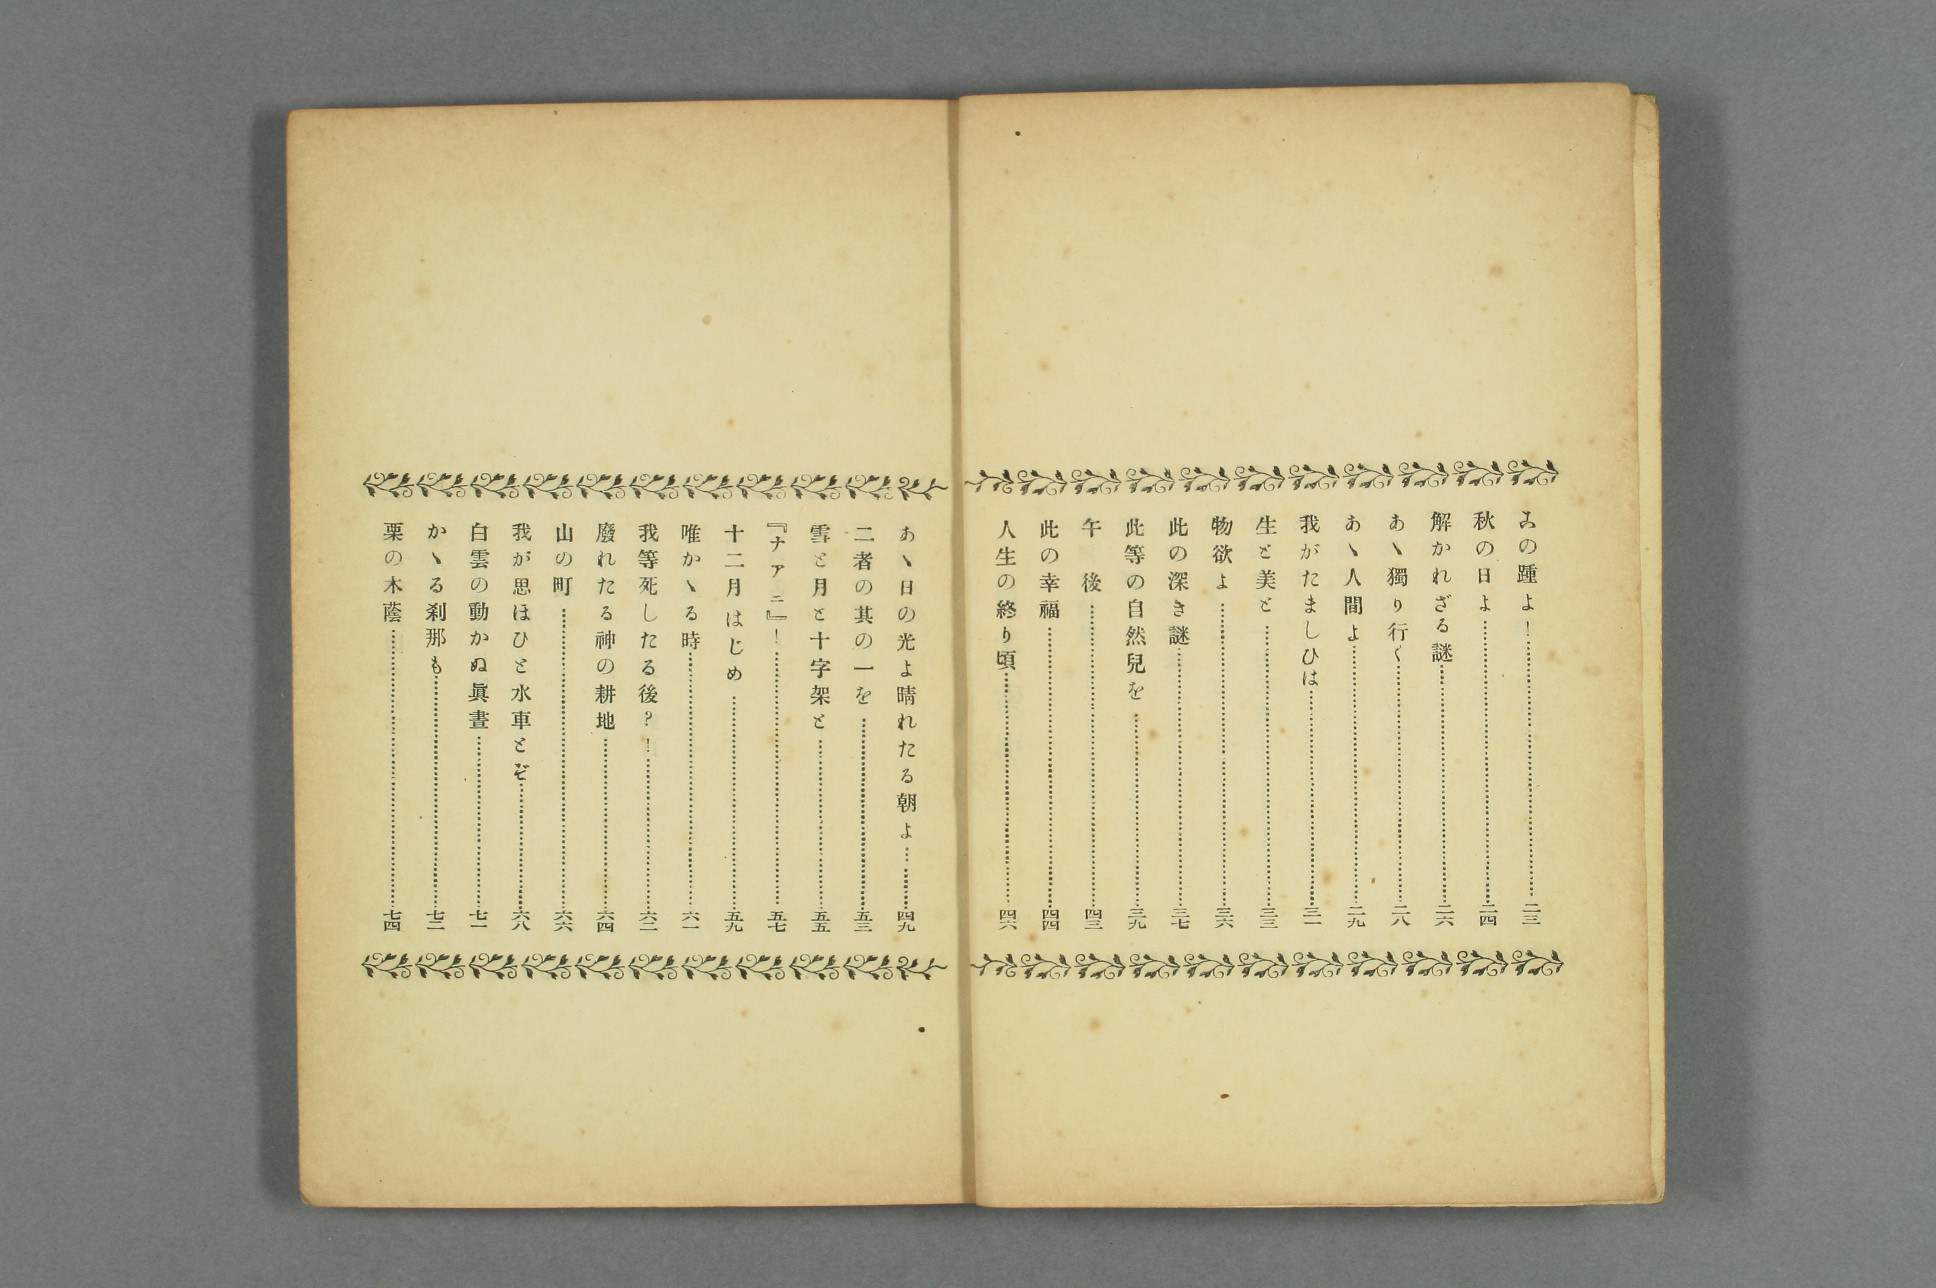 の踵よ！……二三
秋の日よ……二四
解かれざる謎……二六
あヽ獨り行く……二八
あヽ人間よ……二九
我がたましひは……三一
生と美と……三三
物欲よ……三六
此の深き謎……三七
此等の自然兒を……三九
午　後……四三
此の幸福……四四
人生の終り頃……四六
あヽ日の光よ晴れたる朝よ……四九
二者の其の一を……五三
雪と月と十字架と……五五
『ナアニ』！……五七
十二月はじめ……五九
唯かヽる時……六一
我等死したる後？！……六二
廢れたる神の耕地……六四
山の町……六六
我が思ほひと水車とぞ……六八
白雲の動かぬ眞晝……七一
かヽる刹那も……七二
栗の木蔭……七四